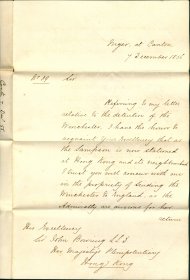 Niger, at Canton
7 December 1856
No. 19 Sir
Referring to my letter
relative to the detention of the
Winchester, I have the honor to
acquaint Your Excellency that as
the Sampson is now stationed
at Hong Kong and its neighbourhood
I trust you will concur with me
in the propriety of sending the
Winchester to England, as the
Admiralty are anxious for her
return
His Excellency
Sir John Bowring LL.D.
Her Majesty's Plenipotentiary
Hong Kong